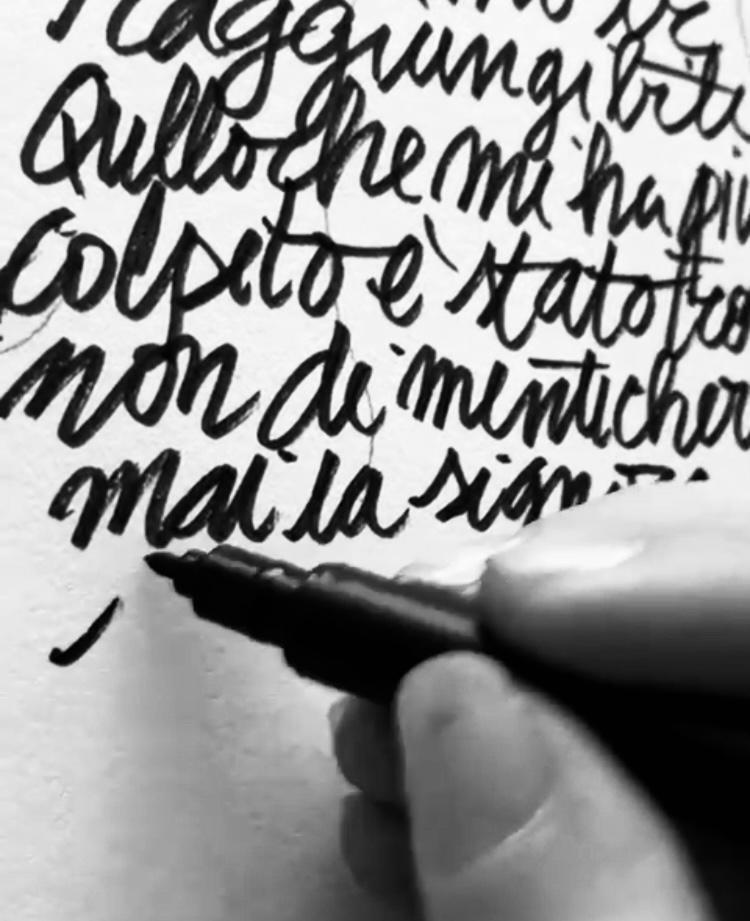 raggiungibili
Qulloche mi ha più
colpito è stato
non di menticher
mai la sign